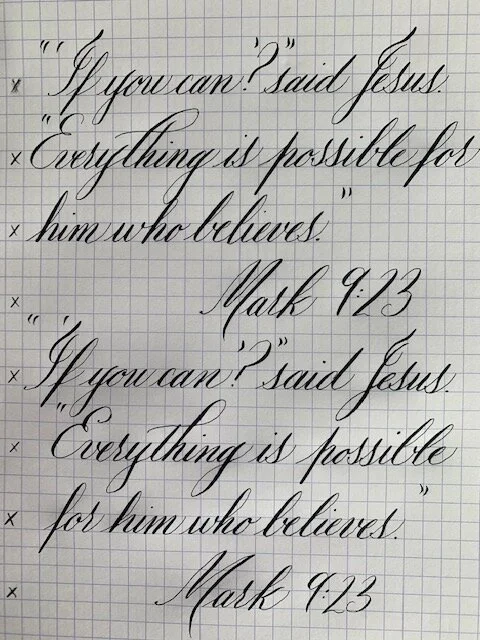 "'If you can'?" said Jesus.
"Everything is possible for
him who believes."
Mark 9:23
"'If you can'?" said Jesus.
"Everything is possible
for him who believes."
Mark 9:23